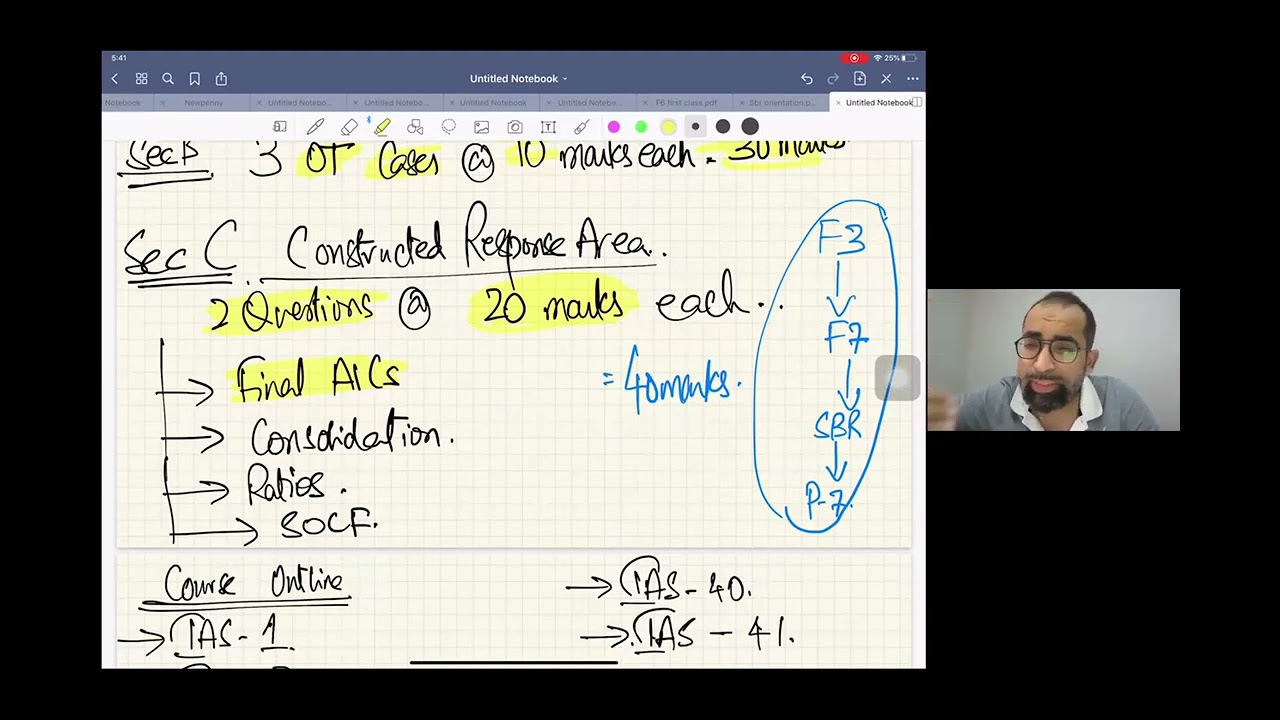 5:41
25%
Untitled Notebook
Notebook
Newpenny
Untitled Notebo...
Untitled Notebo...
Untitled Notebook
Untitled Notebo...
F6 first class.pdf
Sbr orientation.p...
Untitled Notebook
Sec B 3 OT Cases @ 10 marks each = 30 marks
Sec C. Constructed Response Area.
2 Questions @ 20 marks each..
= 40 marks.
→ Final A/Cs
→ Consolidation.
→ Ratios.
→ SOCF.
F3
↓
F7
↓
SBR
↓
P-7.
Course Outline
→ IAS - 1.
→ IAS - 40.
→ IAS - 41.